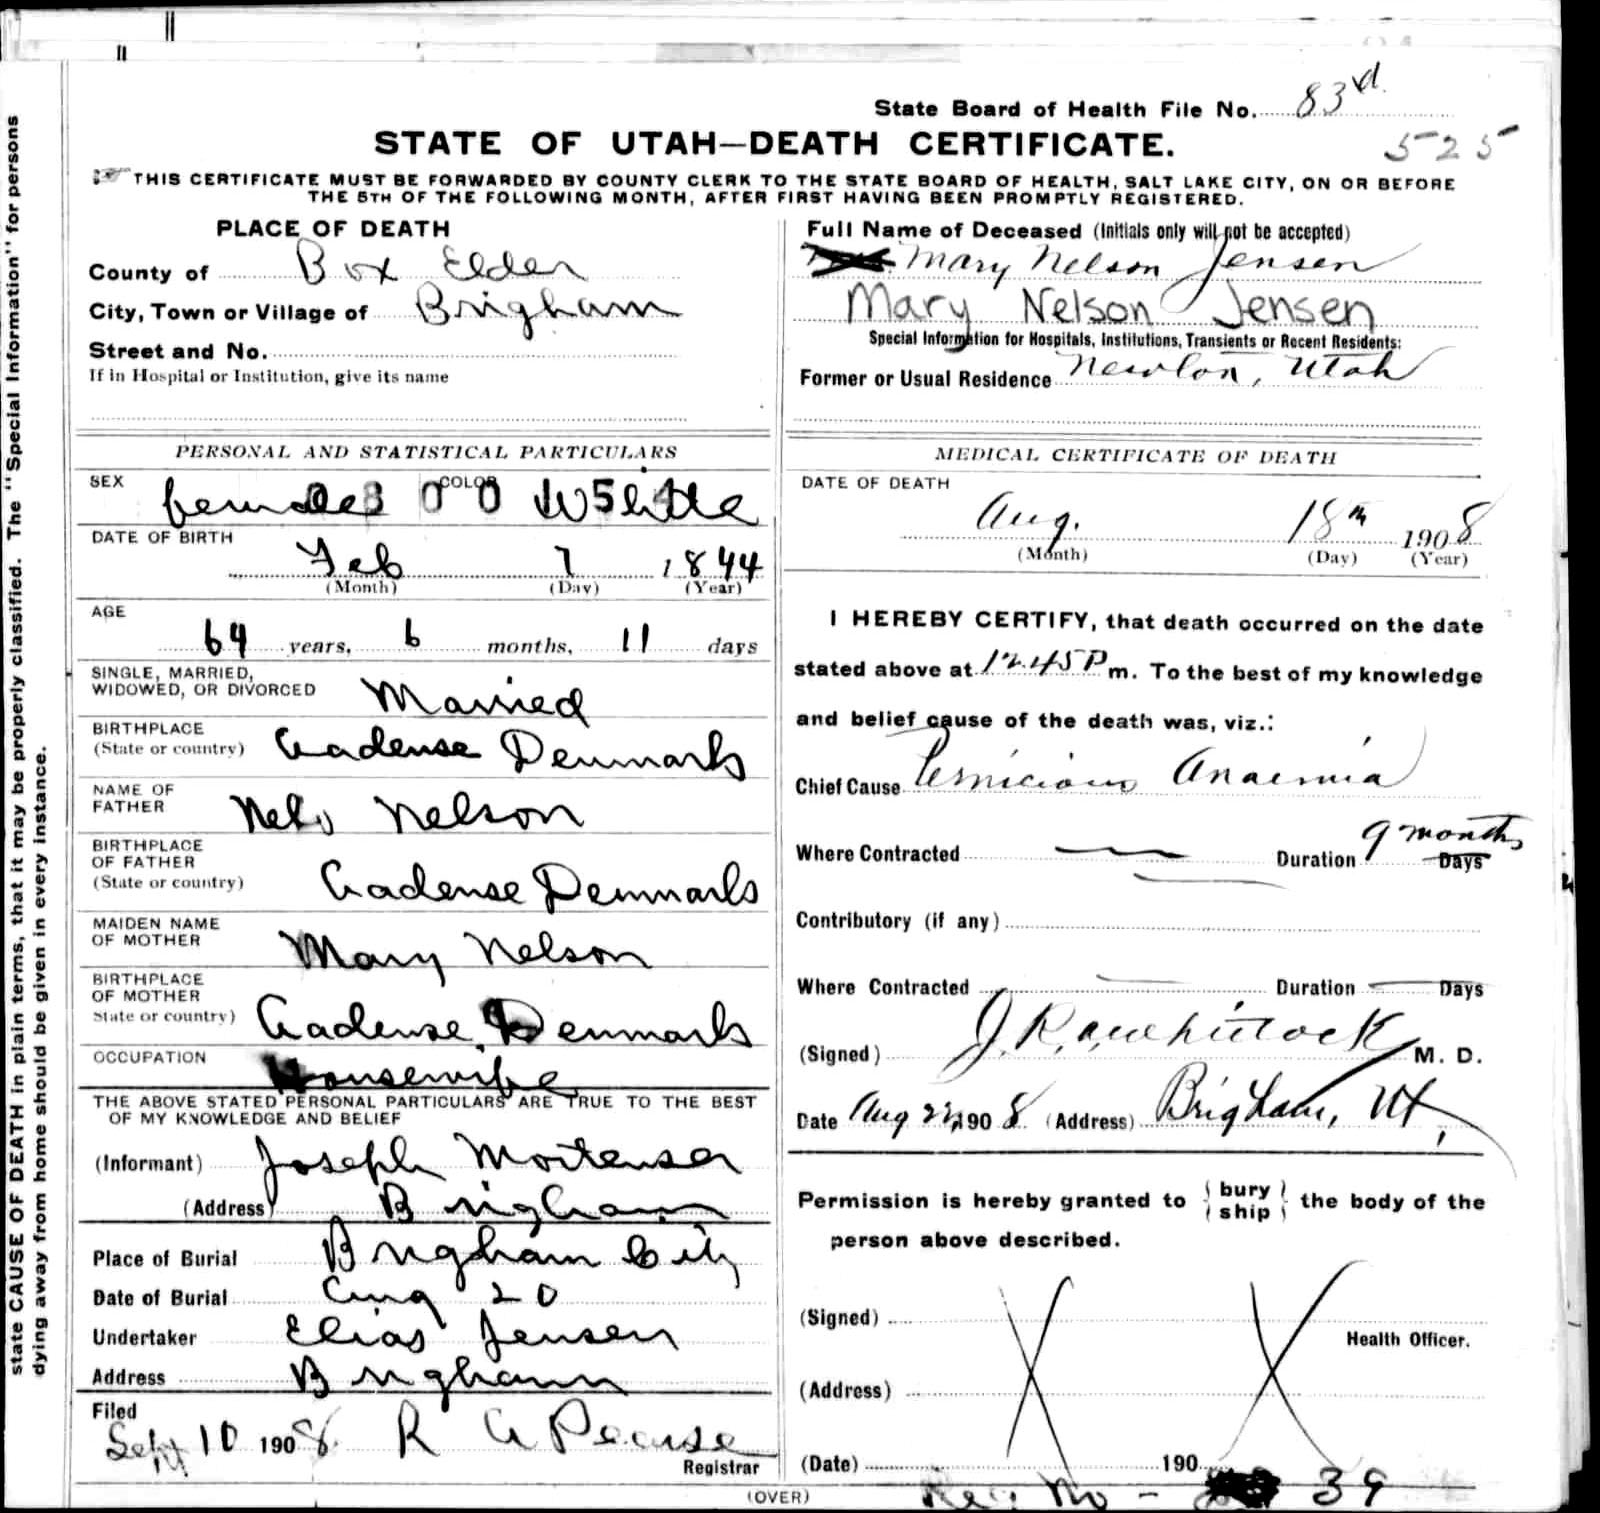 State Board of Health File No. 83rd
STATE OF UTAH—DEATH CERTIFICATE. 525
THIS CERTIFICATE MUST BE FORWARDED BY COUNTY CLERK TO THE STATE BOARD OF HEALTH, SALT LAKE CITY, ON OR BEFORE
THE 5TH OF THE FOLLOWING MONTH, AFTER FIRST HAVING BEEN PROMPTLY REGISTERED.
state CAUSE OF DEATH in plain terms, that it may be properly classified. The "Special Information" for persons
dying away from home should be given in every instance.
PLACE OF DEATH
County of Box Elder
City, Town or Village of Brigham
Street and No.
If in Hospital or Institution, give its name
PERSONAL AND STATISTICAL PARTICULARS
SEX female COLOR White
DATE OF BIRTH
Feb 7 1844
(Month) (Day) (Year)
AGE
64 years, 6 months, 11 days
SINGLE, MARRIED,
WIDOWED, OR DIVORCED Married
BIRTHPLACE
(State or country) Gadense Denmark
NAME OF
FATHER Nels Nelson
BIRTHPLACE
OF FATHER
(State or country) Gadense Denmark
MAIDEN NAME
OF MOTHER Mary Nelson
BIRTHPLACE
OF MOTHER
State or country) Gadense, Denmark
OCCUPATION Housewife
THE ABOVE STATED PERSONAL PARTICULARS ARE TRUE TO THE BEST
OF MY KNOWLEDGE AND BELIEF
(Informant) Joseph Mortensen
(Address) Brigham
Place of Burial Brigham City
Date of Burial Aug 20
Undertaker Elias Jensen
Address Brigham
Filed
Sept 10 1908. R A Pearse
Registrar
(OVER)
Full Name of Deceased (Initials only will not be accepted)
Mary Nelson Jensen
Mary Nelson Jensen
Special Information for Hospitals, Institutions, Transients or Recent Residents:
Former or Usual Residence Newton, Utah
MEDICAL CERTIFICATE OF DEATH
DATE OF DEATH
Aug. 18th 1908
(Month) (Day) (Year)
I HEREBY CERTIFY, that death occurred on the date
stated above at 12.45 P m. To the best of my knowledge
and belief cause of the death was, viz.:
Chief Cause Pernicious Anaemia
Where Contracted Duration 9 months Days
Contributory (if any)
Where Contracted Duration Days
(Signed) M. D.
Date Aug 1908 (Address) Brigham, Ut,
Permission is hereby granted to { bury ship } the body of the
person above described.
(Signed)
Health Officer.
(Address)
(Date) 190
Reg. No - 39